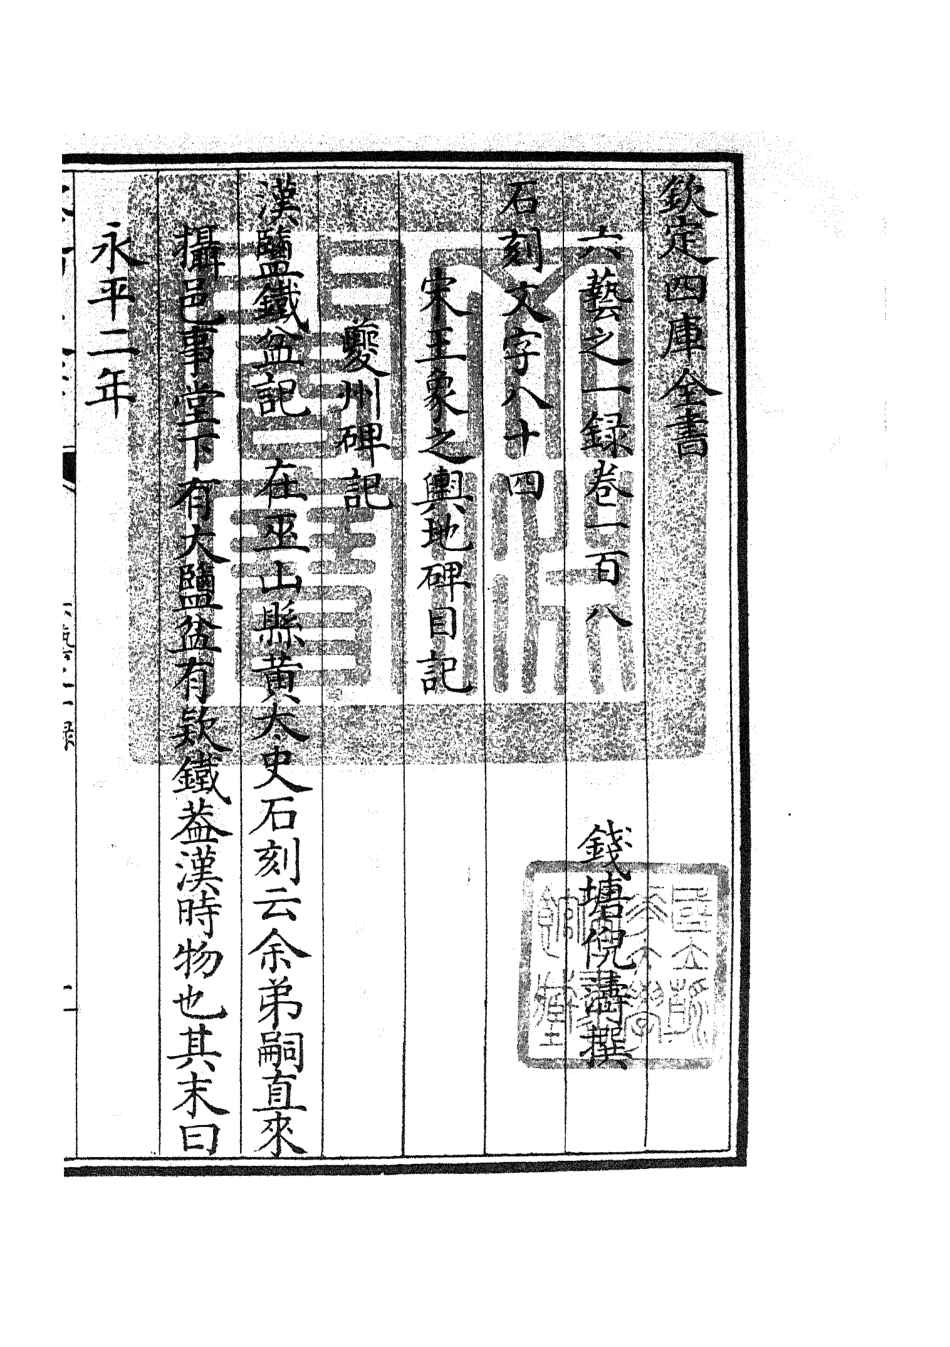 欽定四庫全書
六藝之一録卷一百八
錢塘倪濤撰
石刻文字八十四
宋王象之輿地碑目記
夔州碑記
漢鹽鐵盆記 在巫山縣黄太史石刻云余弟嗣直來
攝邑事堂下有大鹽盆有欵鐵葢漢時物也其末曰
永平二年